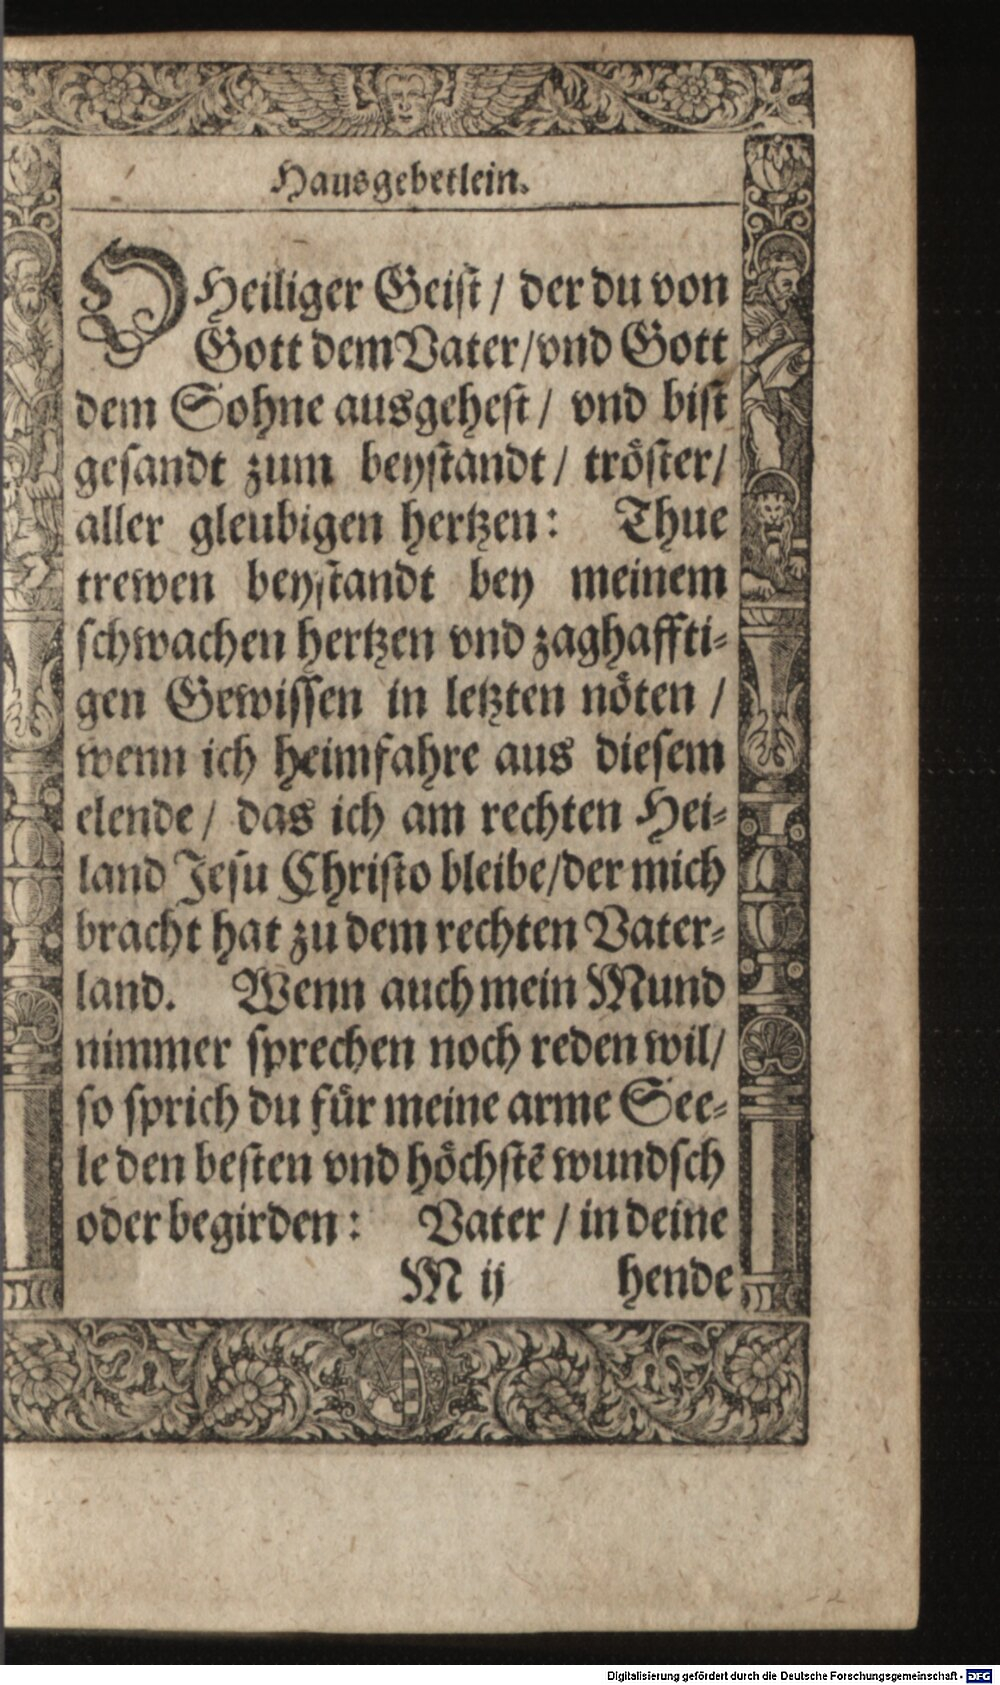 Hausgebetlein.
O Heiliger Geist / der du von
Gott dem Vater / vnd Gott
dem Sohne ausgehest / vnd bist
gesandt zum beystandt / tröster /
aller gleubigen hertzen: Thue
trewen beystandt bey meinem
schwachen hertzen vnd zaghaffti-
gen Gewissen in letzten nöten /
wenn ich heimfahre aus diesem
elende / das ich am rechten Hei-
land Jesu Christo bleibe / der mich
bracht hat zu dem rechten Vater-
land. Wenn auch mein Mund
nimmer sprechen noch reden wil /
so sprich du für meine arme See-
le den besten vnd höchstẽ wundsch
oder begirden: Vater / in deine
M ij hende
Digitalisierung gefördert durch die Deutsche Forschungsgemeinschaft - DFG